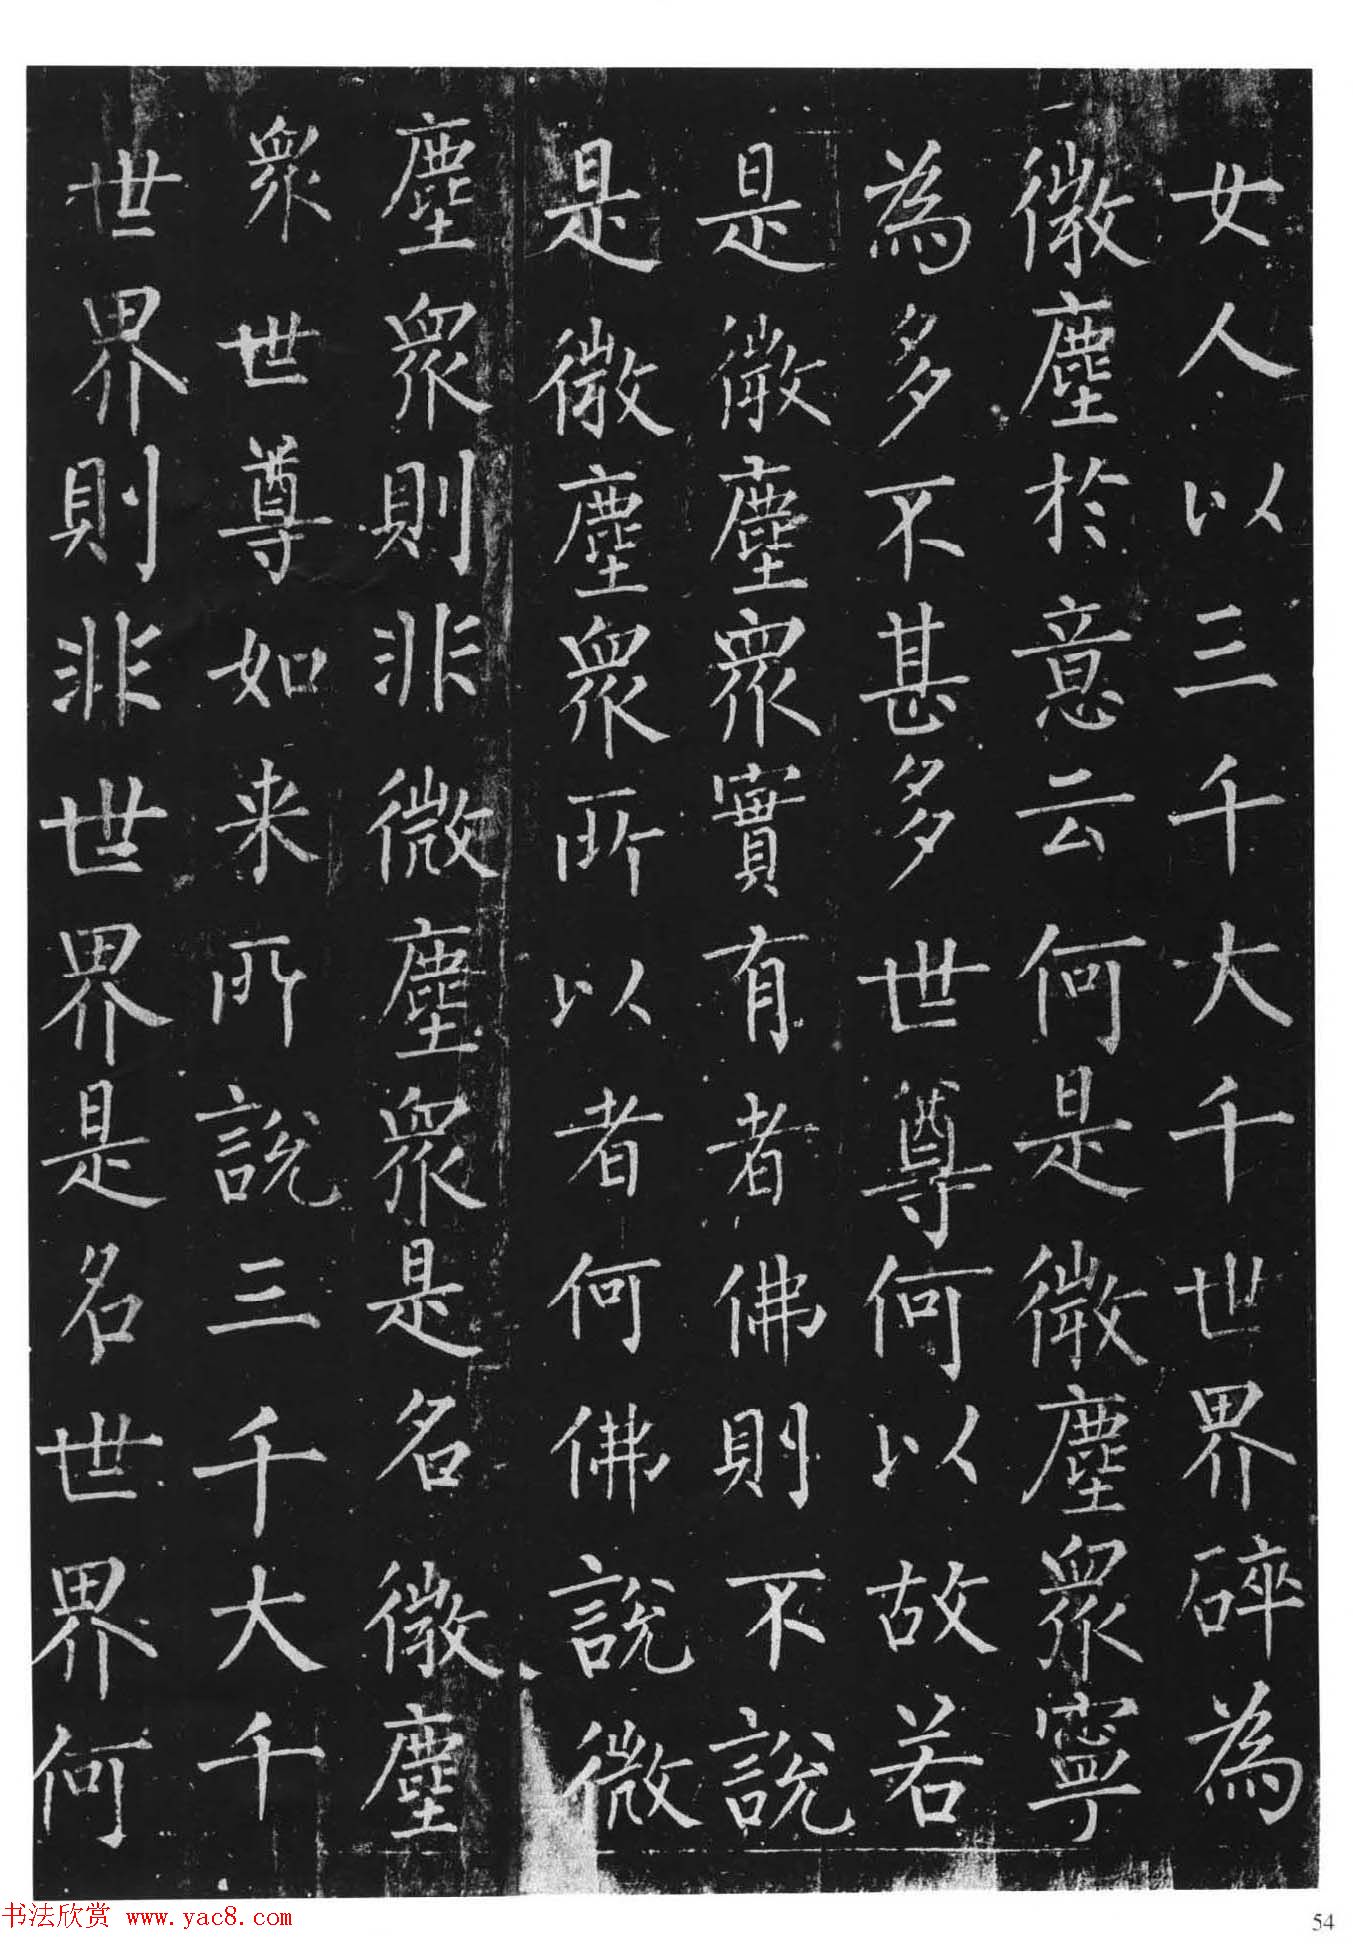 女人以三千大千世界碎為
微塵於意云何是微塵眾寧
為多不甚多世尊何以故若
是微塵眾實有者佛則不說
是微塵眾所以者何佛說微
塵眾則非微塵眾是名微塵
眾世尊如来所說三千大千
世界則非世界是名世界何
书法欣赏 www.yac8.com
54